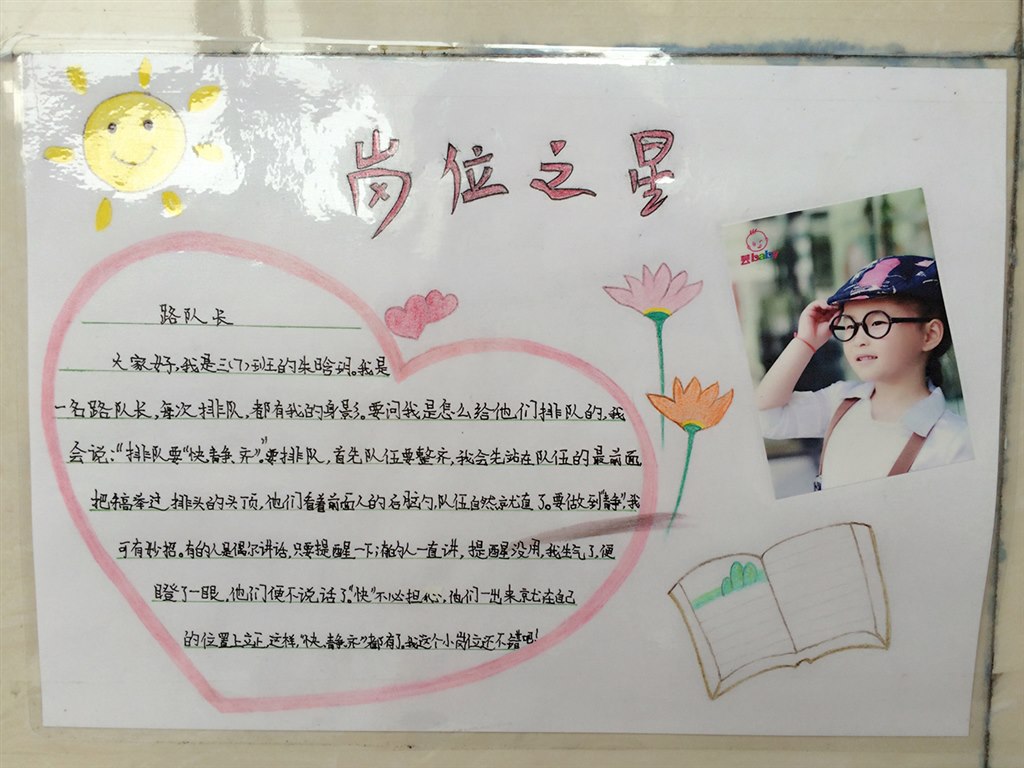 岗位之星
昙baby
路队长
大家好,我是三(7)班的朱晗玥。我是
一名路队长,每次排队,都有我的身影。要问我是怎么给他们排队的,我
会说:“排队要“快、静、齐”。要排队,首先队伍要整齐,我会先站在队伍的最前面
把稿举过排头的头顶,他们看着前面人的后脑勺,队伍自然就直了。要做到“静”,我
可有妙招。有的人是偶尔讲话,只要提醒一下;有的人一直讲,提醒没用,我生气了,便
瞪了一眼,他们便不说话了。“快”不必担心,他们一出来就在自己
的位置上立正,这样,“快、静、齐”都有了。我这个小岗位还不错吧!